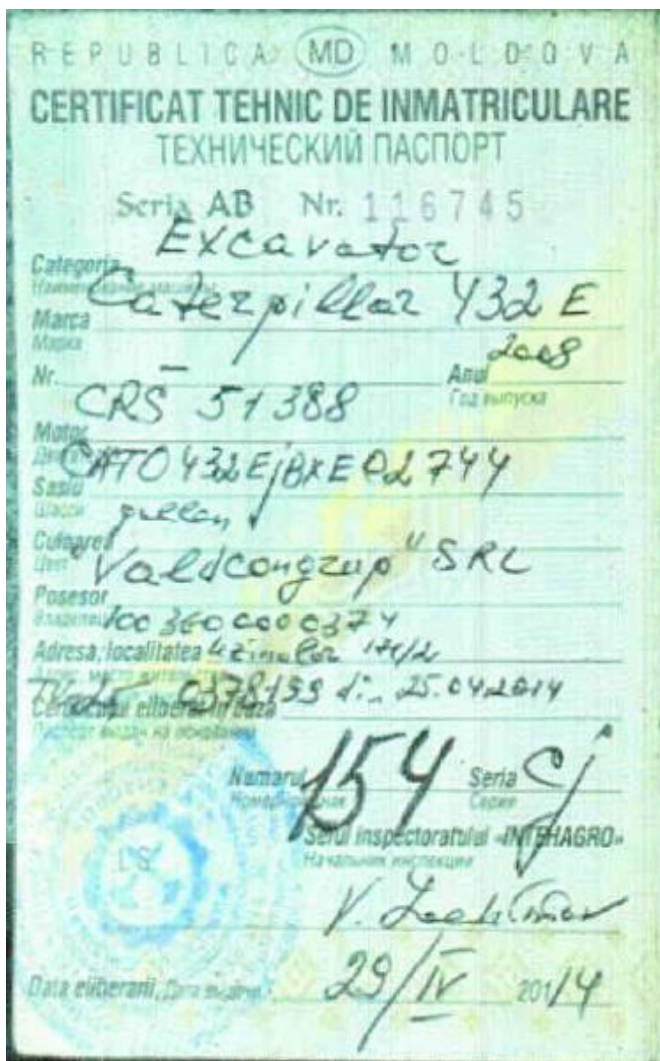 REPUBLICA MD MOLDOVA
CERTIFICAT TEHNIC DE INMATRICULARE
ТЕХНИЧЕСКИЙ ПАСПОРТ
Seria AB Nr. 116745
Excavator
Categoria
Наименование машины
Caterpillar 432 E
Marca
Марка
2008
Nr. — Anul
Год выпуска
CRS 51388
Motor
CAT0432EjBXE02744
Sasiu
Шасси
Culoarea
Цвет
"Valdcongrup" SRL
Posesor
Владелец
1003600000374
Adresa, localitatea Uzinelor 171/2
0378199 din 25.04.2014
Certificatul eliberat in baza
Паспорт выдан на основании
Numarul 154 Seria Cj
Номерной знак Серия
Seful inspectoratului «INTEHAGRO»
Начальник инспекции
LS
V.
Data eliberarii, Дата выдачи 29/IV 2014